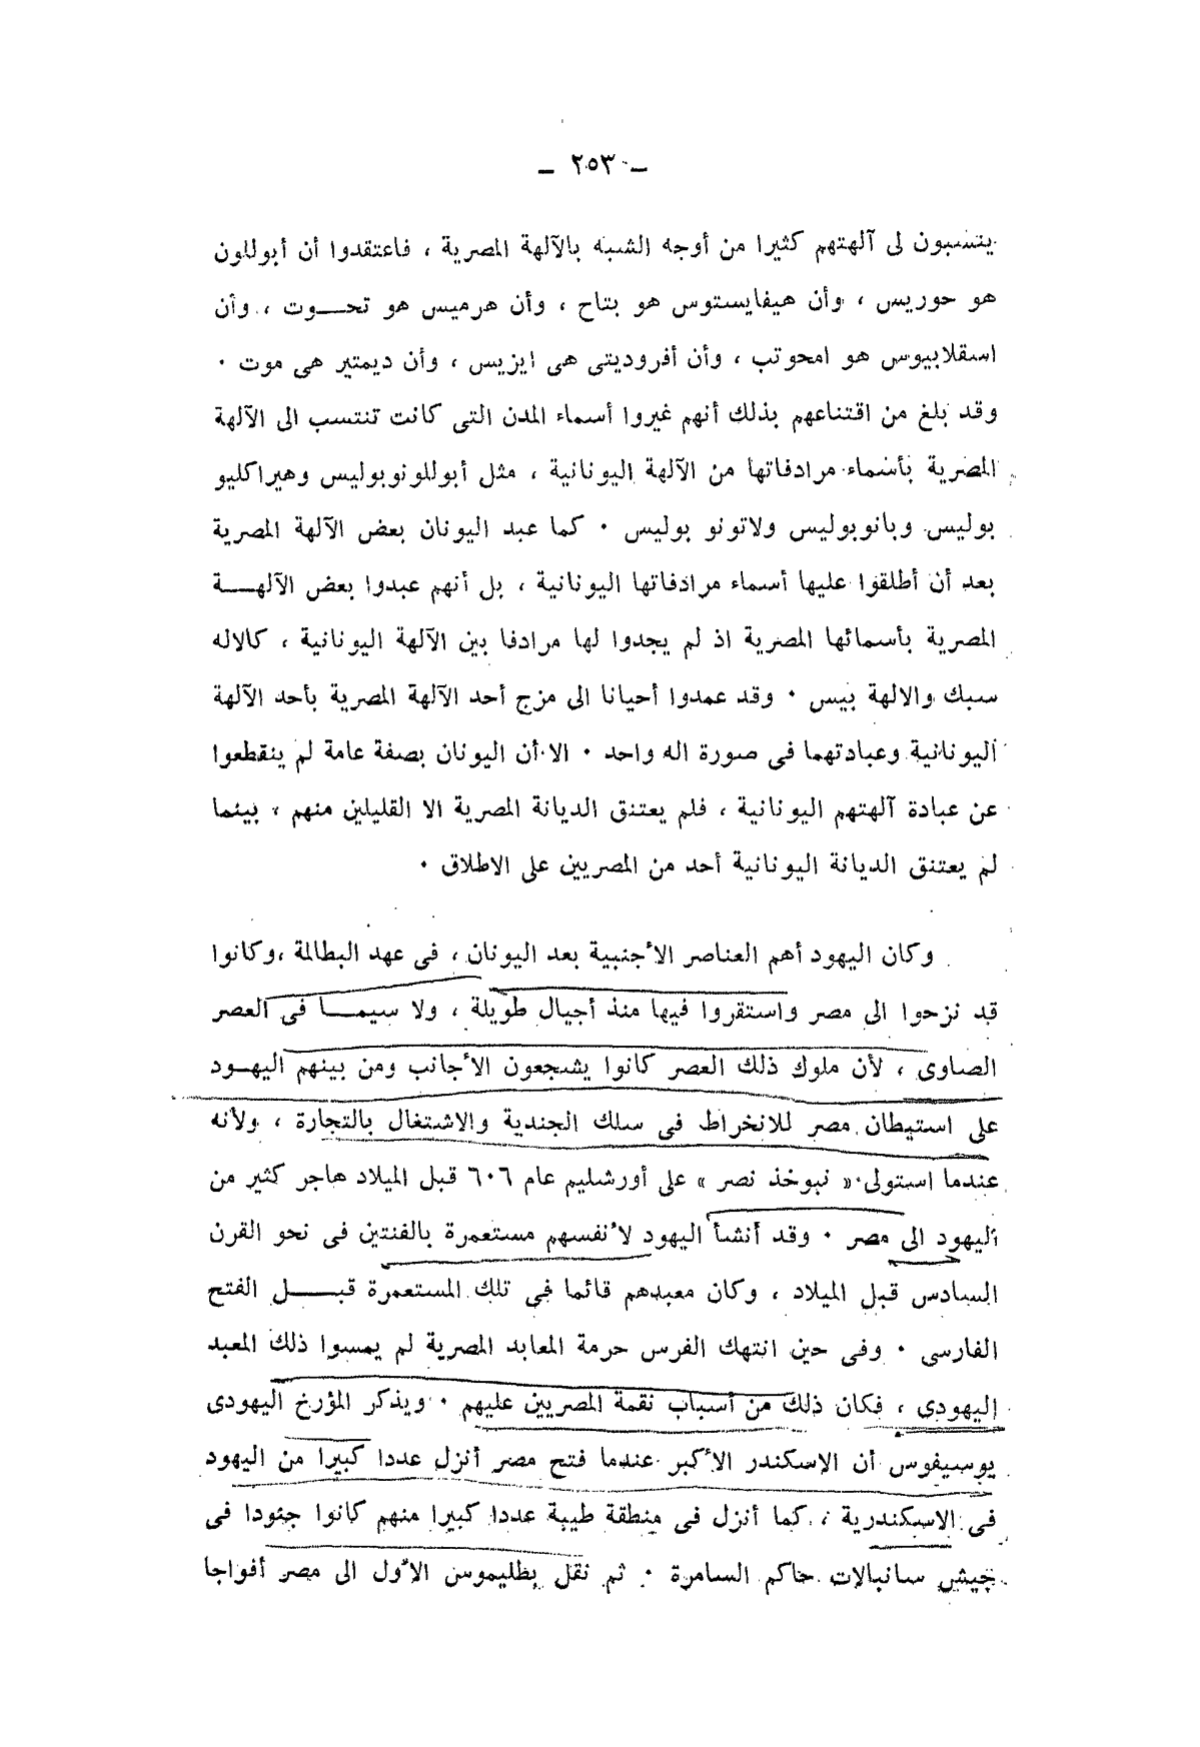 – ٢٥٣ –
ينسبون لى آلهتهم كثيرا من أوجه الشبه بالآلهة المصرية ، فاعتقدوا أن أبوللون
هو حوريس ، وأن هيفايستوس هو بتاح ، وأن هرميس هو تحـــوت ، وأن
اسقلابيوس هو امحوتب ، وأن أفروديتى هى ايزيس ، وأن ديمتير هى موت ٠
وقد بلغ من اقتناعهم بذلك أنهم غيروا أسماء المدن التى كانت تنتسب الى الآلهة
المصرية بأسماء مرادفاتها من الآلهة اليونانية ، مثل أبوللونوبوليس وهيراكليو
بوليس وبانوبوليس ولاتونو بوليس ٠ كما عبد اليونان بعض الآلهة المصرية
بعد أن أطلقوا عليها أسماء مرادفاتها اليونانية ، بل أنهم عبدوا بعض الآلهـــة
المصرية بأسمائها المصرية اذ لم يجدوا لها مرادفا بين الآلهة اليونانية ، كالاله
سبك والالهة بيس ٠ وقد عمدوا أحيانا الى مزج أحد الآلهة المصرية بأحد الآلهة
اليونانية وعبادتهما فى صورة اله واحد ٠ الا أن اليونان بصفة عامة لم ينقطعوا
عن عبادة آلهتهم اليونانية ، فلم يعتنق الديانة المصرية الا القليلين منهم ، بينما
لم يعتنق الديانة اليونانية أحد من المصريين على الاطلاق ٠
وكان اليهود أهم العناصر الأجنبية بعد اليونان ، فى عهد البطالمة ،وكانوا
قد نزحوا الى مصر واستقروا فيها منذ أجيال طويلة ، ولا سيمـــا فى العصر
الصاوى ، لأن ملوك ذلك العصر كانوا يشجعون الأجانب ومن بينهم اليهـود
على استيطان مصر للانخراط فى سلك الجندية والاشتغال بالتجارة ، ولأنه
عندما استولى « نبوخذ نصر » على أورشليم عام ٦٠٦ قبل الميلاد هاجر كثير من
اليهود الى مصر ٠ وقد أنشأ اليهود لأنفسهم مستعمرة بالفنتين فى نحو القرن
السادس قبل الميلاد ، وكان معبدهم قائما فى تلك المستعمرة قبـــل الفتح
الفارسى ٠ وفى حين انتهك الفرس حرمة المعابد المصرية لم يمسوا ذلك المعبد
اليهودى ، فكان ذلك من أسباب نقمة المصريين عليهم ٠ ويذكر المؤرخ اليهودى
يوسيفوس أن الاسكندر الأكبر عندما فتح مصر أنزل عددا كبيرا من اليهود
فى الاسكندرية ، كما أنزل فى منطقة طيبة عددا كبيرا منهم كانوا جنودا فى
جيش سانبالات حاكم السامرة ٠ ثم نقل بطليموس الأول الى مصر أفواجا